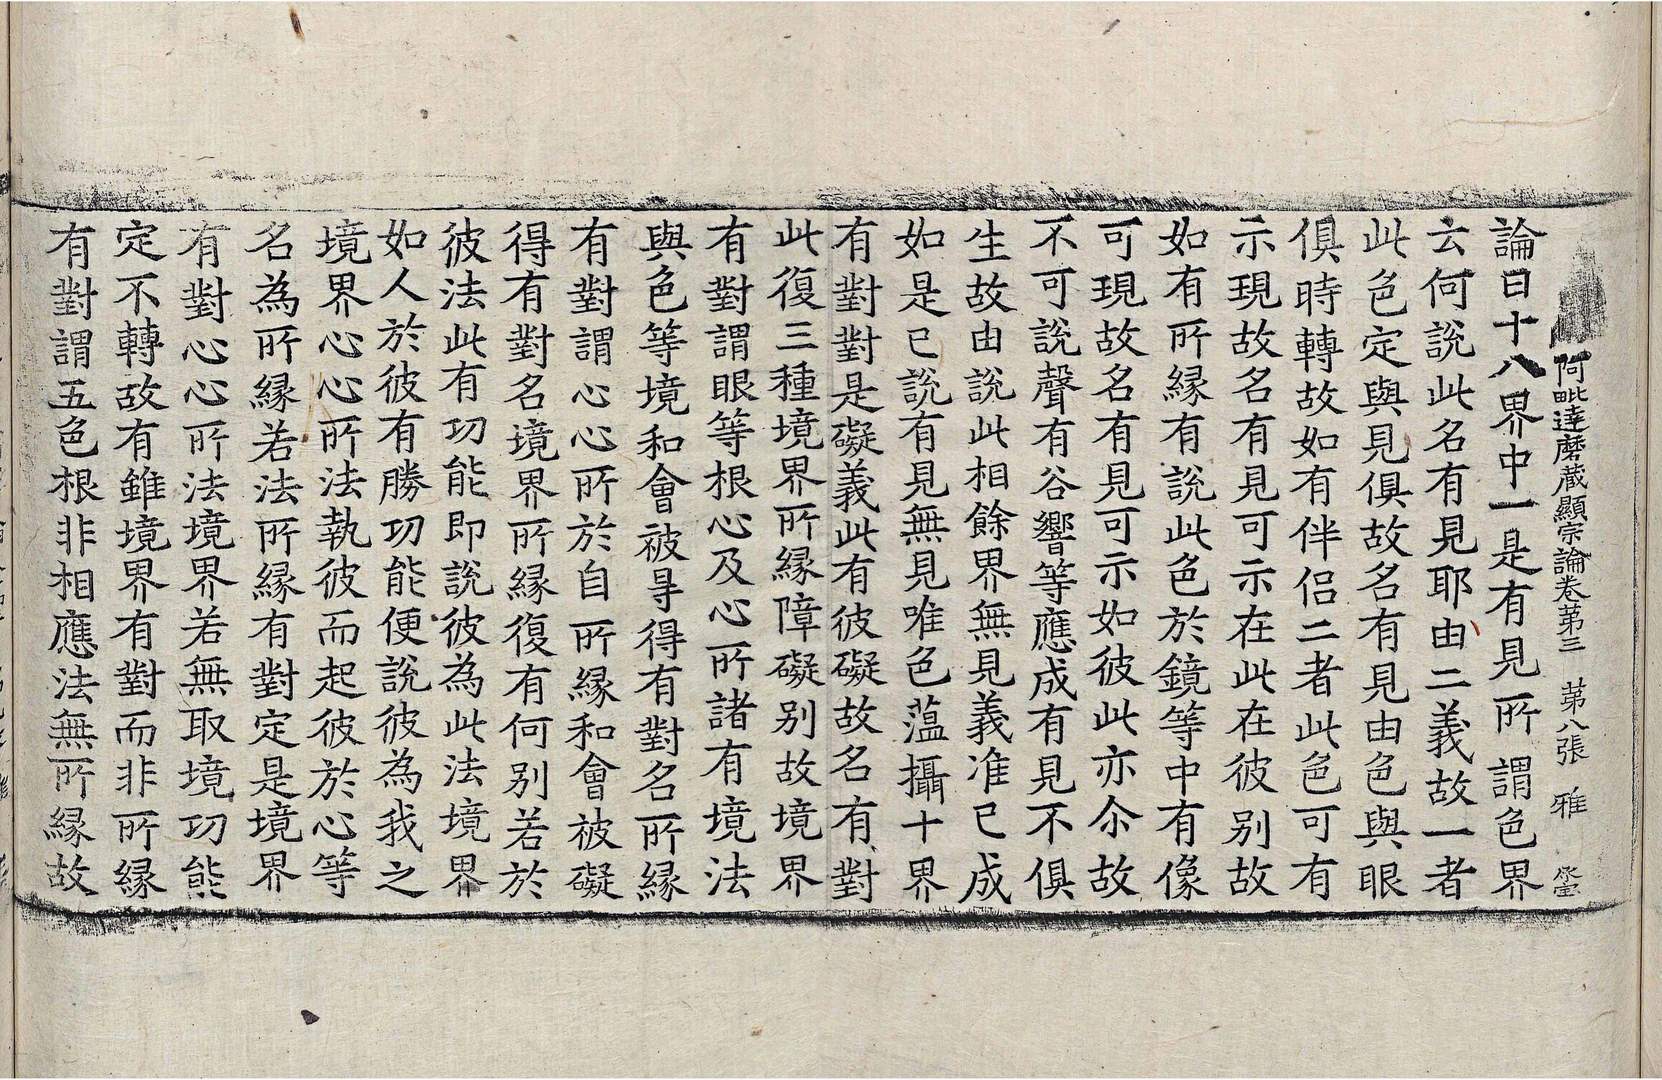 阿毗達磨蔵顯宗論卷第三　第八張　雅
論曰十八界中一是有見所謂色界
云何說此名有見耶由二義故一者
此色定與見俱故名有見由色與眼
俱時轉故如有伴侣二者此色可有
示現故名有見可示在此在彼别故
如有所縁有說此色於鏡等中有像
可現故名有見可示如彼此亦尒故
不可說聲有谷響等應成有見不俱
生故由說此相餘界無見義准已成
如是已說有見無見唯色蕰攝十界
有對對是礙義此有彼礙故名有對
此復三種境界所縁障礙别故境界
有對謂眼等根心及心所諸有境法
與色等境和會被㝵得有對名所縁
有對謂心心所於自所縁和會被礙
得有對名境界所縁復有何别若於
彼法此有功能即說彼為此法境界
如人於彼有勝功能便說彼為我之
境界心心所法執彼而起彼於心等
名為所縁若法所縁有對定是境界
有對心心所法境界若無取境功能
定不轉故有雖境界有對而非所縁
有對謂五色根非相應法無所縁故